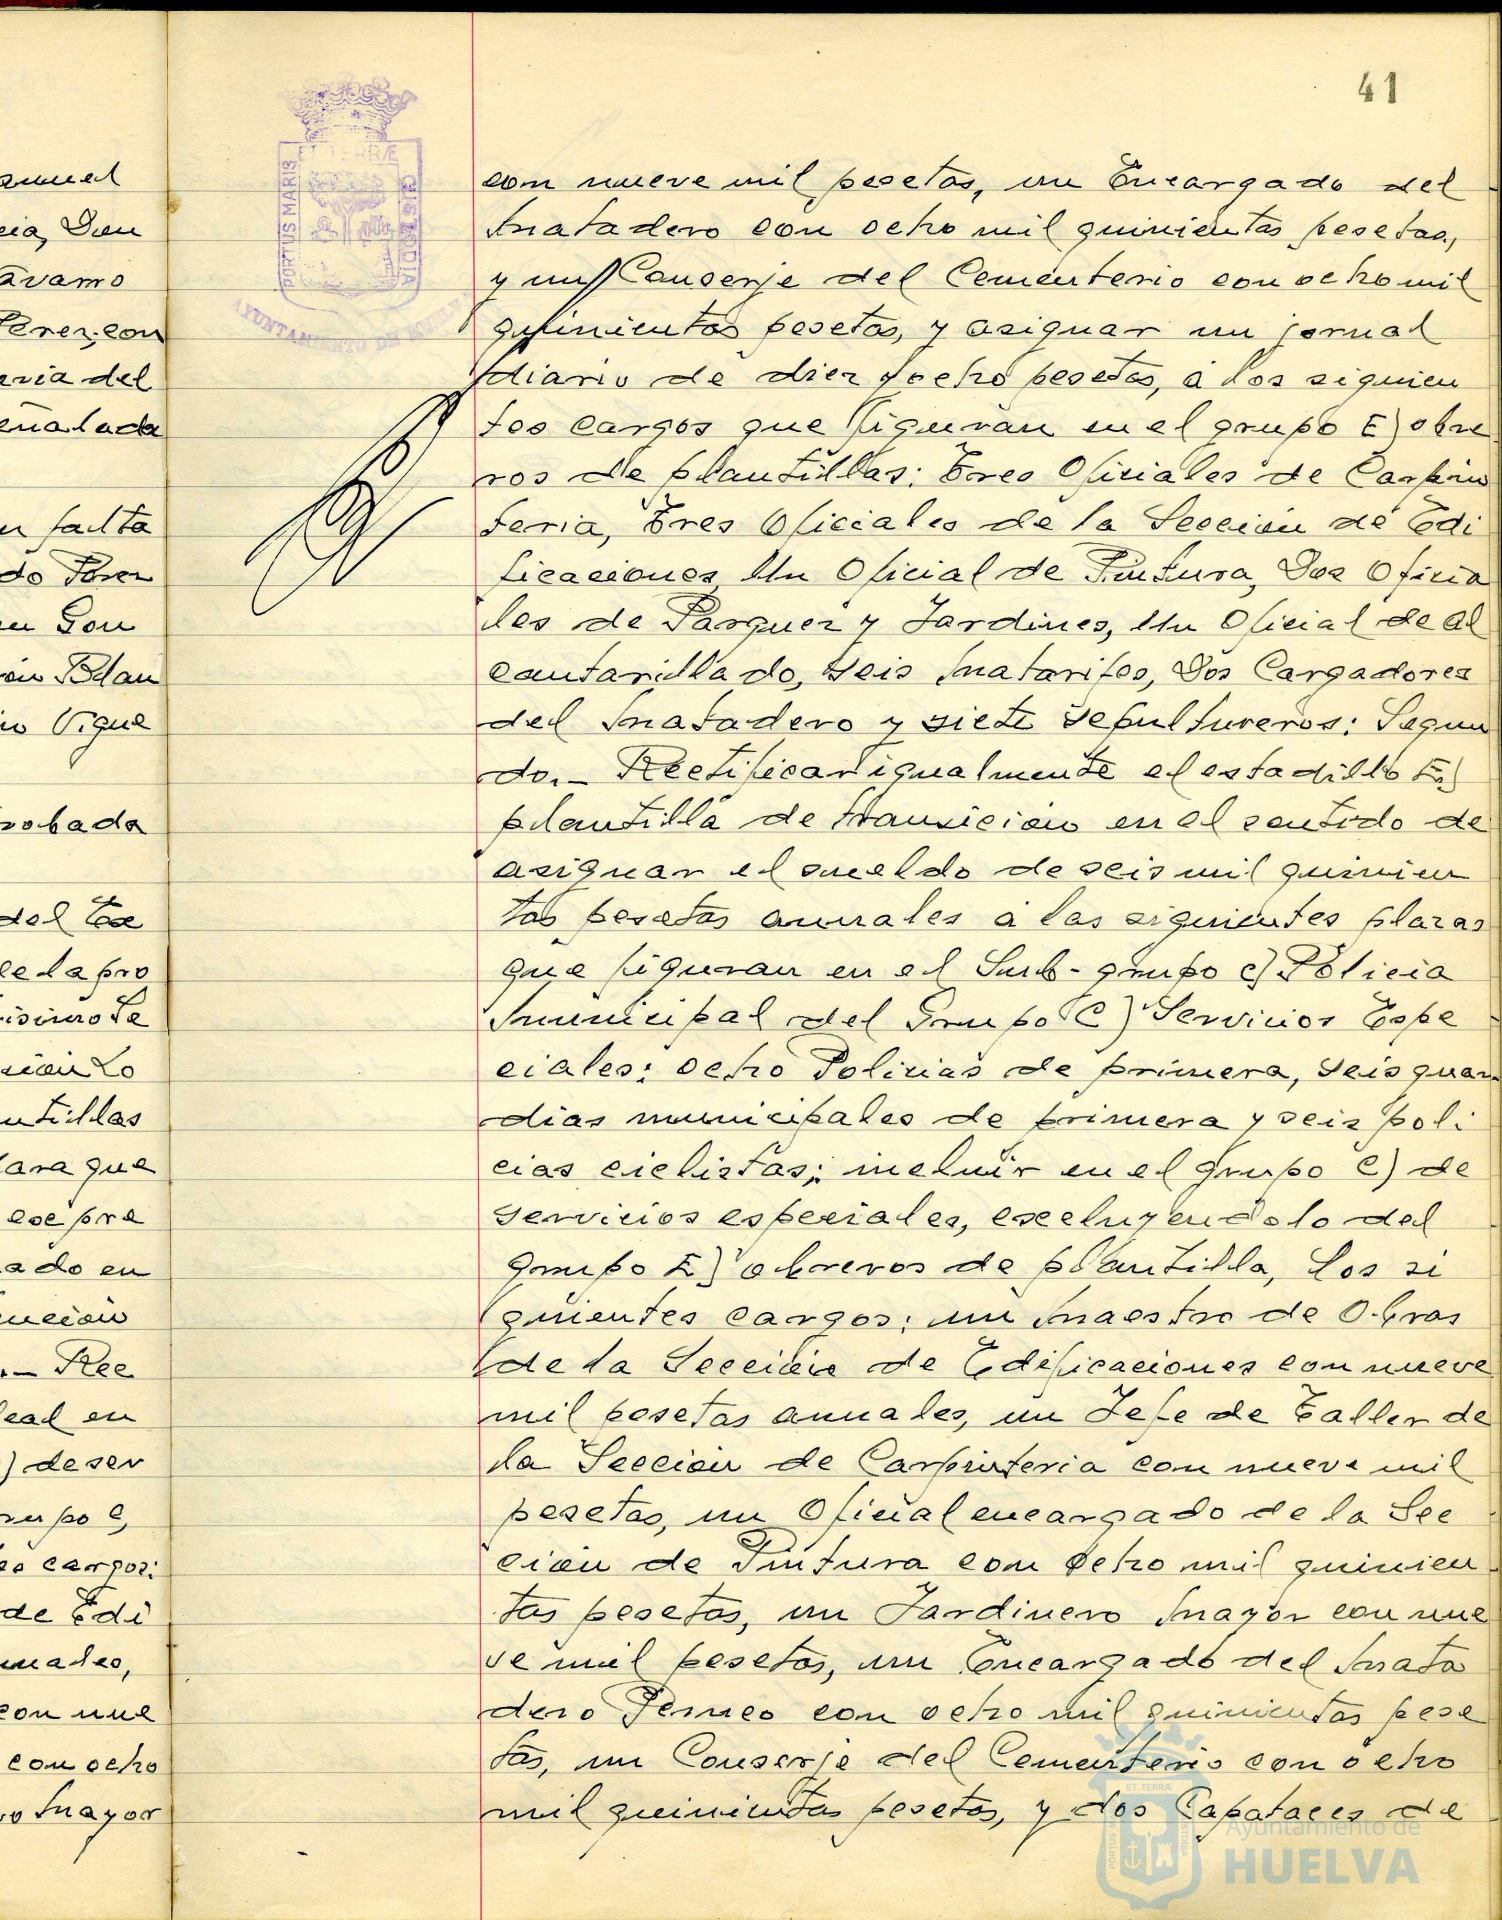 41
PORTUS MARIS
ET TERRÆ
CUSTODIA
AYUNTAMIENTO DE
con nueve mil pesetas, un Encargado del
Matadero con ocho mil quinientas pesetas,
y un Conserje del Cementerio con ocho mil
quinientas pesetas, y asignar un jornal
diario de diez y ocho pesetas, a los siguien
tes cargos que figuran en el grupo E) obre
ros de plantillas: Tres Oficiales de Carpin
teria, Tres Oficiales de la Sección de Edi
ficaciones, Un Oficial de Pintura, Dos Oficia
les de Parques y Jardines, Un Oficial de Al
cantarillado, Seis Matarifes, Dos Cargadores
del Matadero y siete Sepultureros: Segun
do.- Rectificar igualmente el estadillo E)
plantilla de transicion en el sentido de
asignar el sueldo de seis mil quinien
tas pesetas anuales a las siguientes plazas
que figuran en el Sub-grupo c) Policia
Municipal del Grupo C) Servicios Espe
ciales: ocho Policias de primera, seis guar
dias municipales de primera y seis poli
cias ciclistas; incluir en el grupo C) de
servicios especiales, escluyendolo del
grupo E) obreros de plantilla, los si
guientes cargos: un Maestro de Obras
de la Sección de Edificaciones con nueve
mil pesetas anuales, un Jefe de Taller de
la Sección de Carpinteria con nueve mil
pesetas, un Oficial encargado de la Sec
cion de Pintura con ocho mil quinien
tas pesetas, un Jardinero Mayor con nue
ve mil pesetas, un Encargado del Mata
dero con ocho mil quinientas pese
tas, un Conserje del Cementerio con ocho
mil quinientas pesetas, y dos Capataces de
Ayuntamiento de
HUELVA